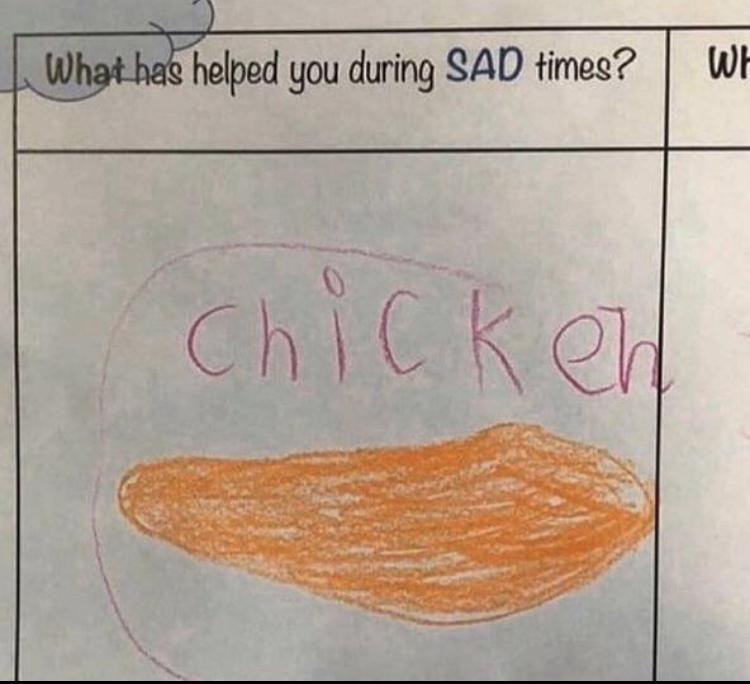 What has helped you during SAD times?
chicken